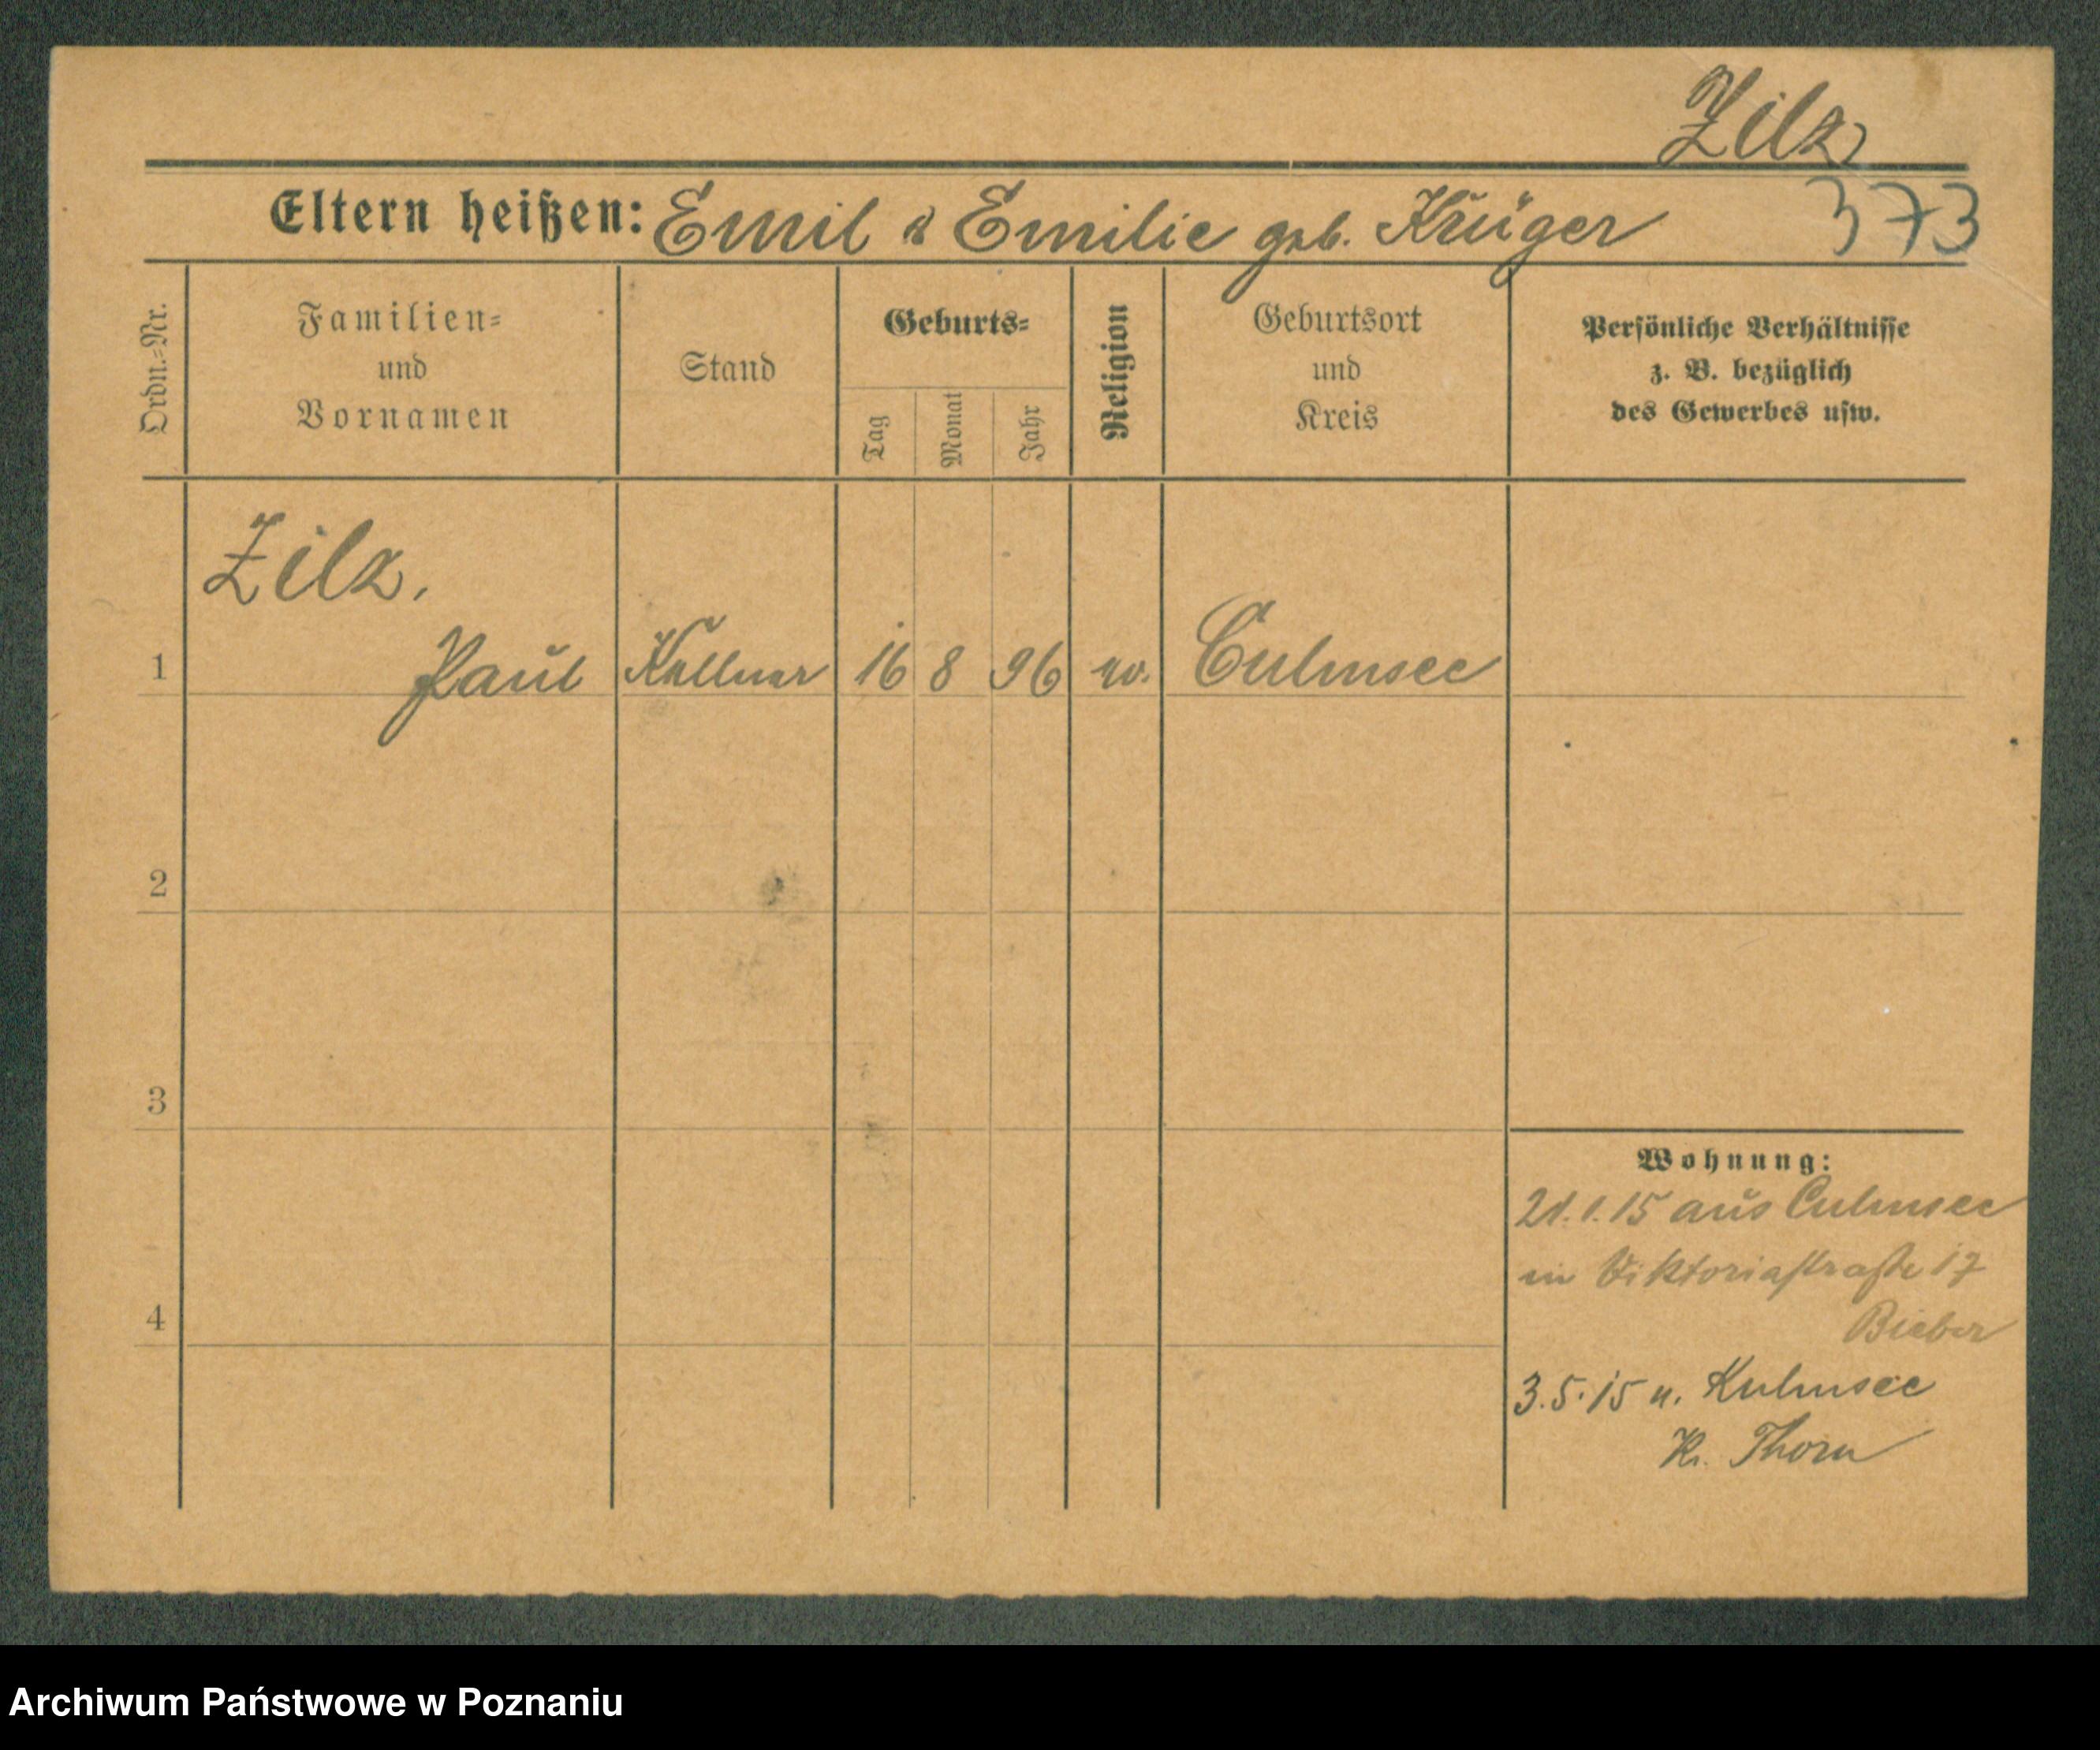 Zilz
Eltern heißen: Emil & Emilie geb. Krüger 373
Ordn.-Nr.
Familien-
und
Vornamen
Stand
Geburts-
Tag
Monat
Jahr
Religion
Geburtsort
und
Kreis
Persönliche Verhältnisse
z. B. bezüglich
des Gewerbes usw.
Zilz.
1 Paul Kellner 16 8 96 Culmsee
2
3
4
Wohnung:
21.1.15 aus Culmsee
in Viktoriastraße 17
Bieber
3.5.15 n. Kulmsee
Kr. Thorn
Archiwum Państwowe w Poznaniu